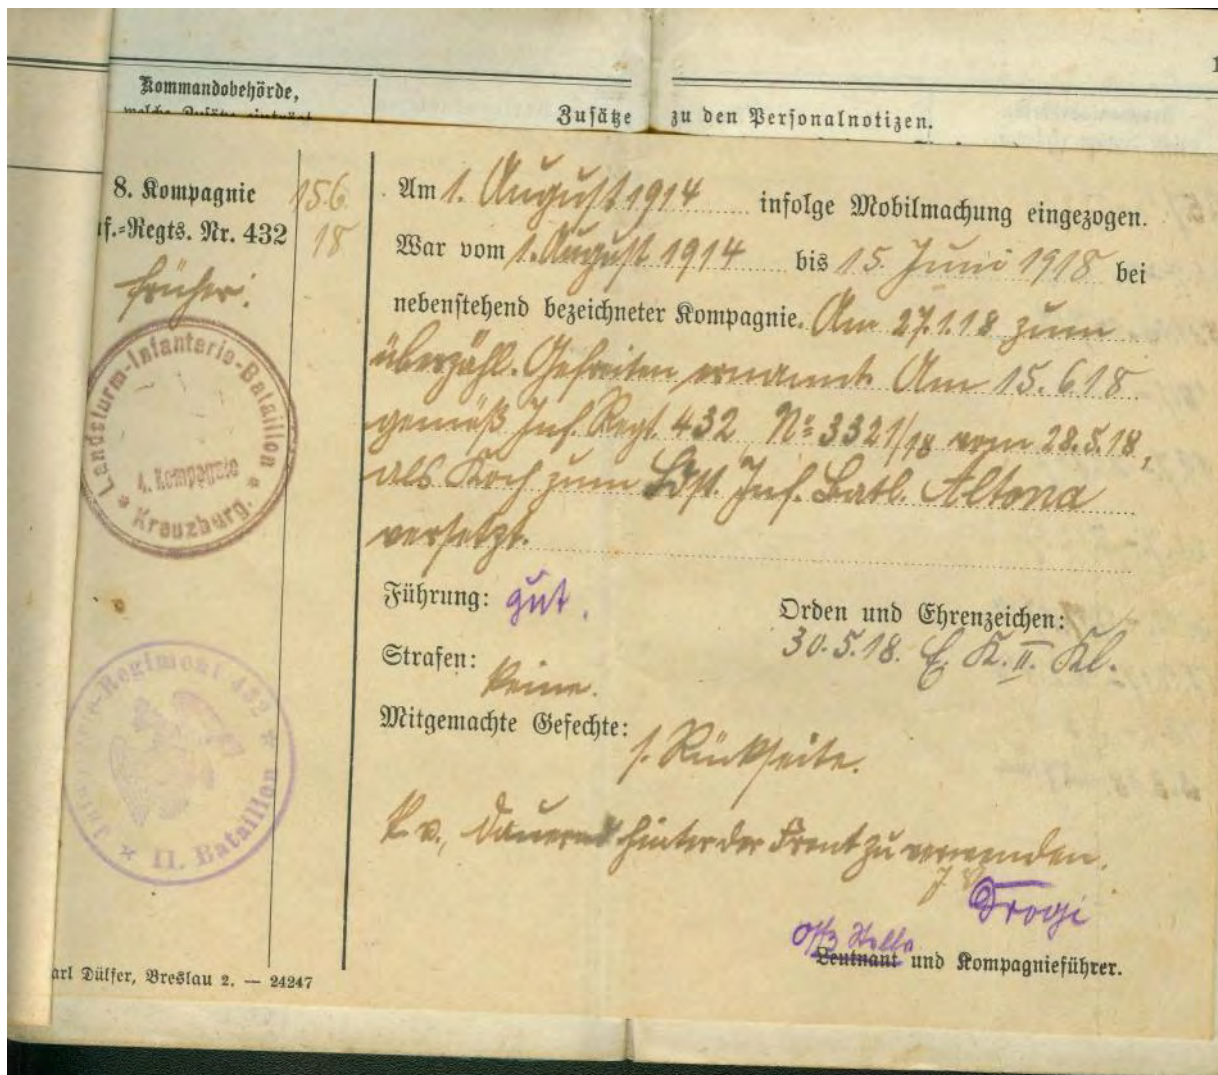 1
Kommandobehörde,
Zusätze zu den Personalnotizen.
8. Kompagnie 15.6.
nf.=Regts. Nr. 432 18
früher:
Landsturm-Infanterie-Bataillon
4. Kompagnie
* Kreuzburg. *
Am 1. August 1914 infolge Mobilmachung eingezogen.
War vom 1. August 1914 bis 15. Juni 1918 bei
nebenstehend bezeichneter Kompagnie. Am 27.1.18 zum
überzähl. Gefreiten ernannt. Am 15.6.18
gemäß Inf. Regt. 432 No 3321/18 vom 28.5.18,
als Koch zum Ldst. Inf. Batl. Altona
versetzt.
Führung: gut.
Orden und Ehrenzeichen:
30.5.18. E. K. II. Kl.
Strafen: keine.
Mitgemachte Gefechte: s. Rückseite.
Infanterie-Regiment 432
* II. Bataillon *
k. v., dauernd hinter der Front zu verwenden.
Offz Stellv
Leutnant und Kompagnieführer.
arl Dülfer, Breslau 2. — 24247